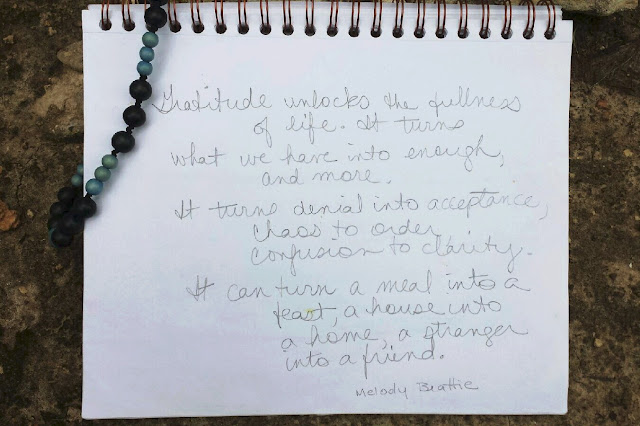 Gratitude unlocks the fullness
of life. It turns
what we have into enough,
and more.
It turns denial into acceptance,
chaos to order
confusion to clarity.
It can turn a meal into a
feast, a house into
a home, a stranger
into a friend.
Melody Beattie